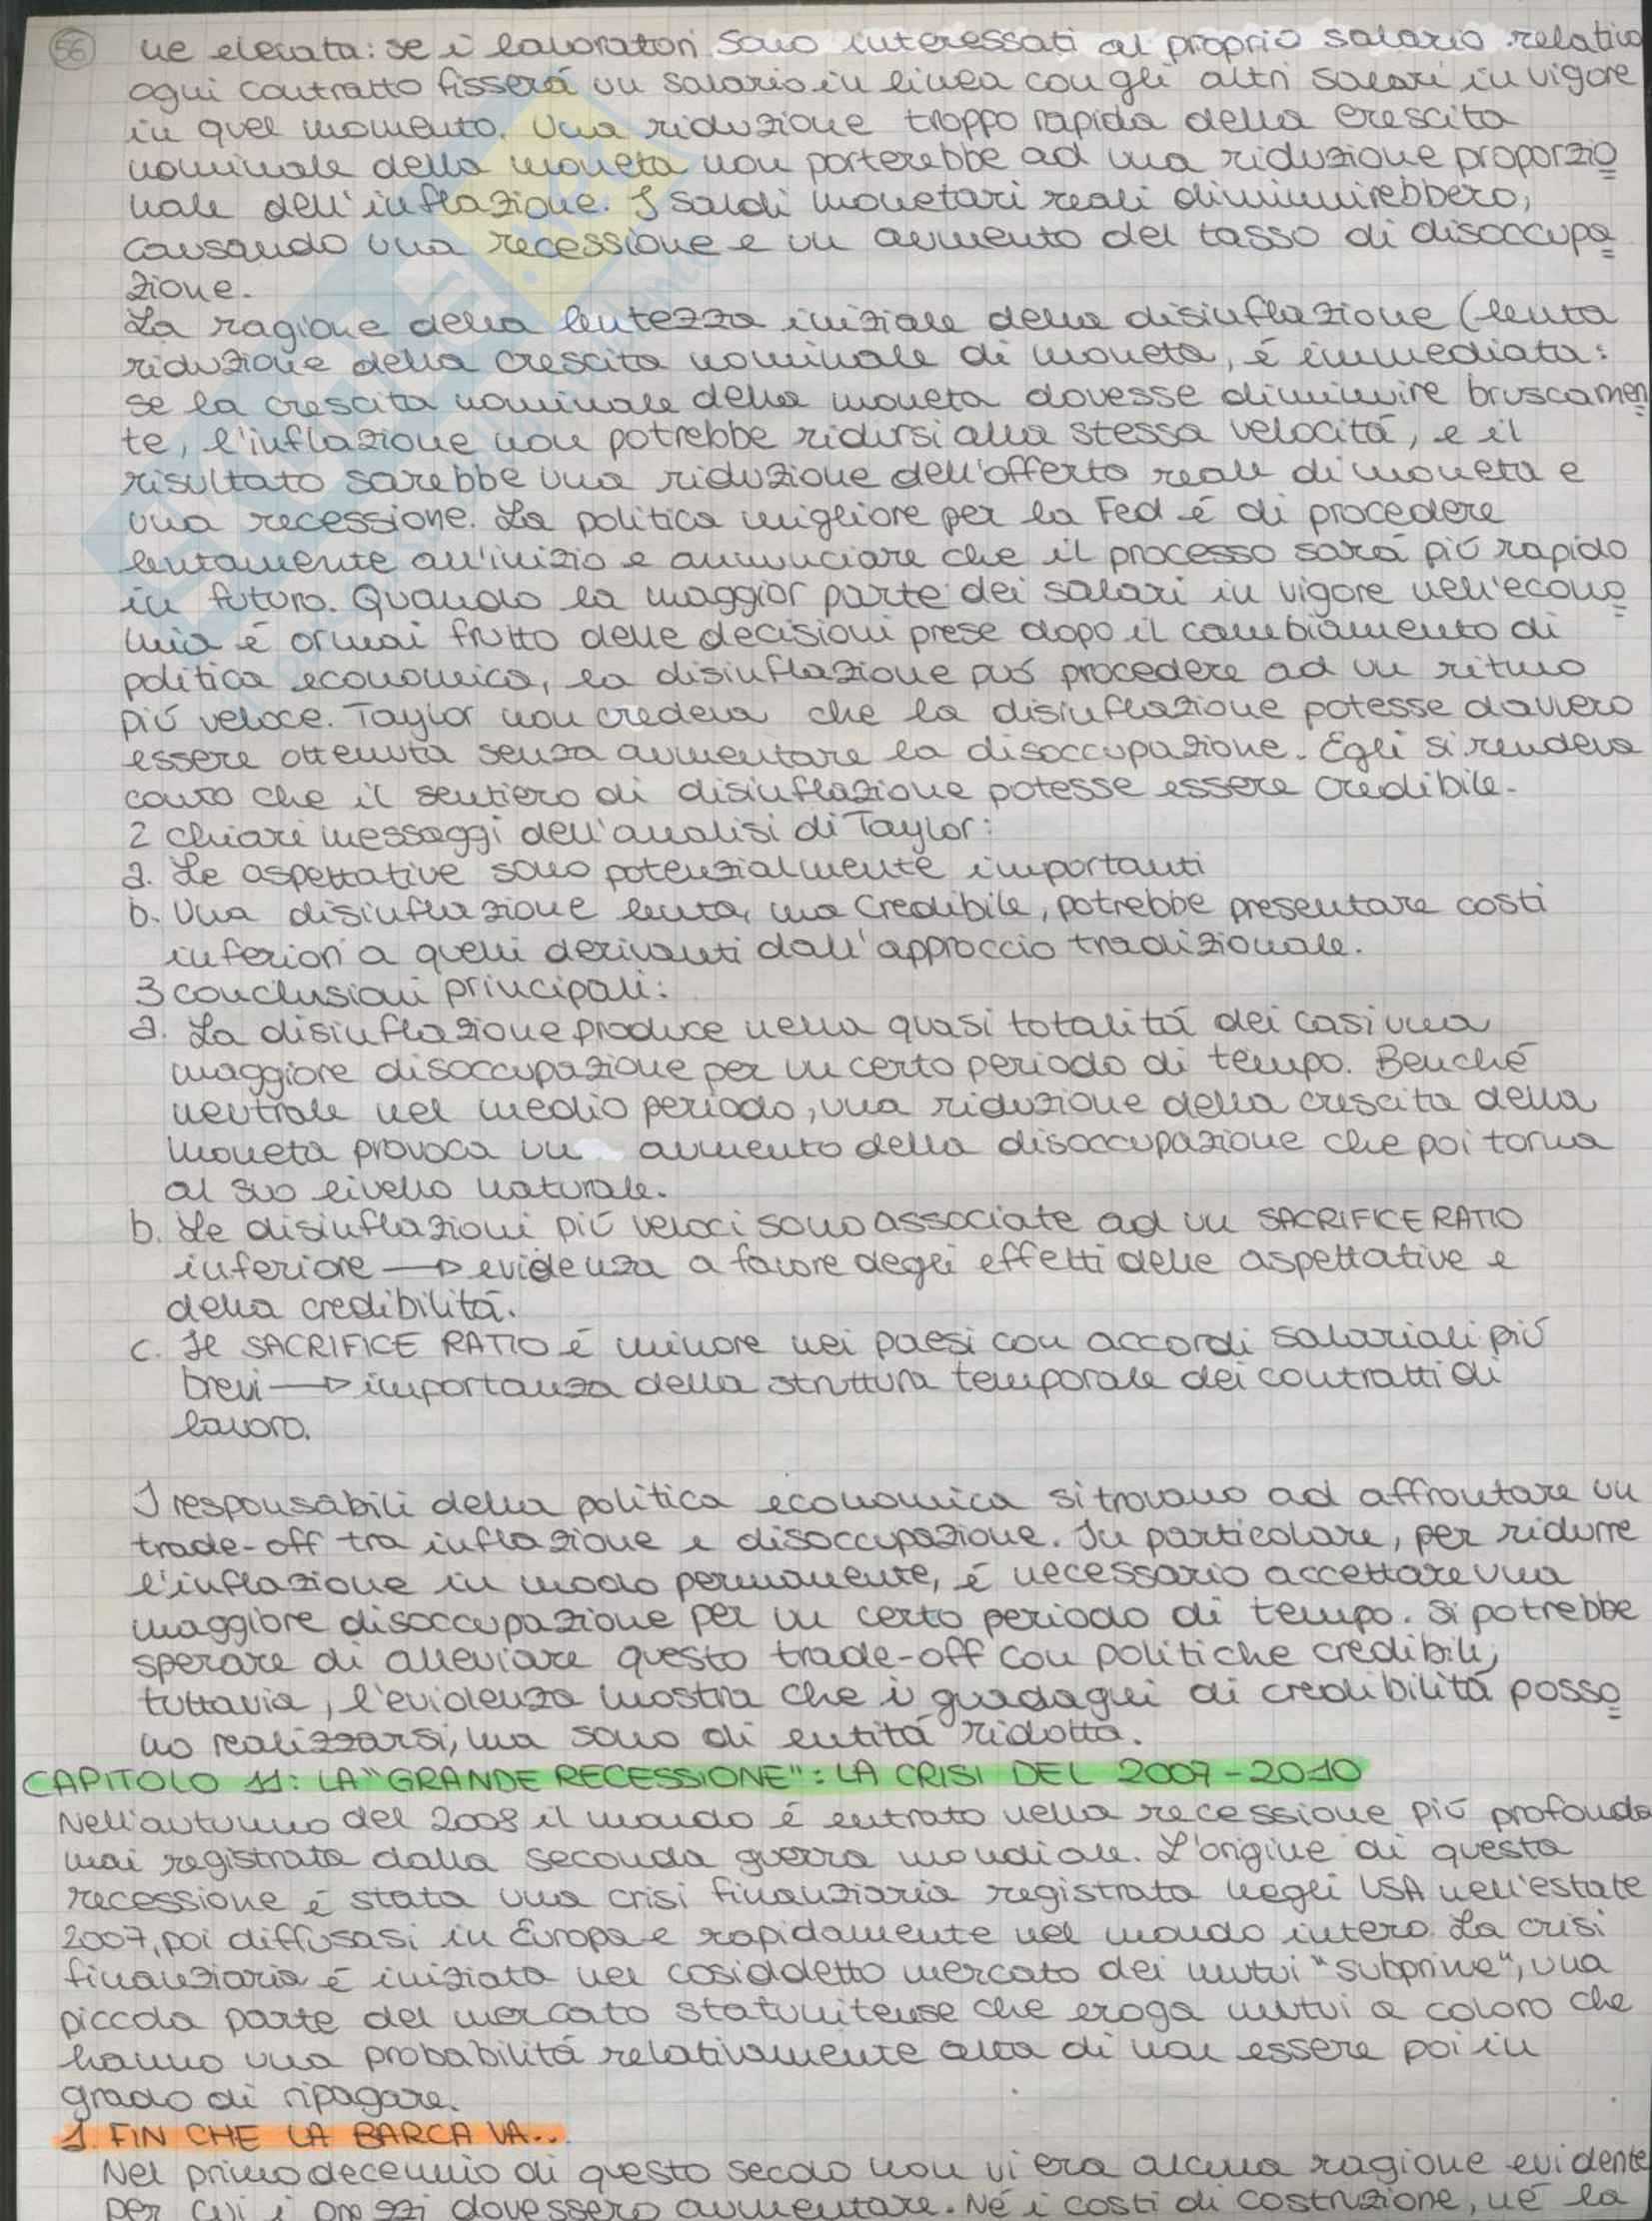 56
ne elevata: se i lavoratori sono interessati al proprio salario relativo
ogni contratto fisserà un salario in linea con gli altri salari in vigore
in quel momento. Una riduzione troppo rapida della crescita
nominale della moneta non porterebbe ad una riduzione proporzio
nale dell'inflazione. I saldi monetari reali diminuirebbero,
causando una recessione e un aumento del tasso di disoccupa
zione.
La ragione della lentezza iniziale della disinflazione (lenta
riduzione della crescita nominale di moneta, é immediata:
se la crescita nominale della moneta dovesse diminuire bruscamen
te, l'inflazione non potrebbe ridursi alla stessa velocitá, e il
risultato sarebbe una riduzione dell'offerta reale di moneta e
una recessione. La politica migliore per la Fed é di procedere
lentamente all'inizio e annunciare che il processo sará piú rapido
in futuro. Quando la maggior parte dei salari in vigore nell'econo
mia é ormai frutto delle decisioni prese dopo il cambiamento di
politica economica, la disinflazione puó procedere ad un ritmo
piú veloce. Taylor non credeva che la disinflazione potesse davvero
essere ottenuta senza aumentare la disoccupazione. Egli si rendeva
conto che il sentiero di disinflazione potesse essere credibile.
2 chiari messaggi dell'analisi di Taylor:
a. Le aspettative sono potenzialmente importanti
b. Una disinflazione lenta, ma credibile, potrebbe presentare costi
inferiori a quelli derivanti dall'approccio tradizionale.
3 conclusioni principali:
a. La disinflazione produce nella quasi totalitá dei casi una
maggiore disoccupazione per un certo periodo di tempo. Benché
neutrale nel medio periodo, una riduzione della crescita della
moneta provoca un aumento della disoccupazione che poi torna
al suo livello naturale.
b. Le disinflazioni piú veloci sono associate ad un SACRIFICE RATIO
inferiore → evidenza a favore degli effetti delle aspettative e
della credibilitá.
c. Il SACRIFICE RATIO é minore nei paesi con accordi salariali piú
brevi → importanza della struttura temporale dei contratti di
lavoro.
I responsabili della politica economica si trovano ad affrontare un
trade-off tra inflazione e disoccupazione. In particolare, per ridurre
l'inflazione in modo permanente, é necessario accettare una
maggiore disoccupazione per un certo periodo di tempo. Si potrebbe
sperare di alleviare questo trade-off con politiche credibili;
tuttavia, l'evidenza mostra che i guadagni di credibilitá posso
no realizzarsi, ma sono di entitá ridotta.
CAPITOLO 11: LA "GRANDE RECESSIONE": LA CRISI DEL 2007-2010
Nell'autunno del 2008 il mondo é entrato nella recessione piú profonda
mai registrata dalla seconda guerra mondiale. L'origine di questa
recessione é stata una crisi finanziaria registrata negli USA nell'estate
2007, poi diffusasi in Europa e rapidamente nel mondo intero. La crisi
finanziaria é iniziata nel cosiddetto mercato dei mutui "subprime", una
piccola parte del mercato statunitense che eroga mutui a coloro che
hanno una probabilitá relativamente alta di non essere poi in
grado di ripagare.
1. FIN CHE LA BARCA VA...
Nel primo decennio di questo secolo non vi era alcuna ragione evidente
per cui i prezzi dovessero aumentare. Né i costi di costruzione, né la